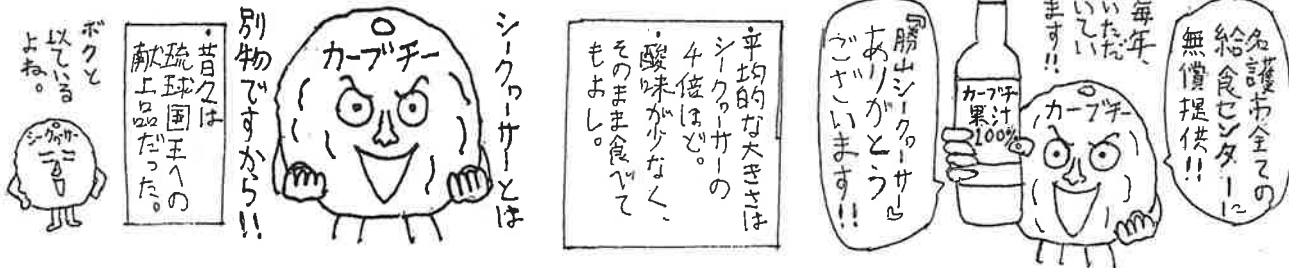 名護市全ての
給食センターに
無償提供!!
毎年、
いただ
いてい
ます!!
カーブチー
カーブチー
果汁
100%
『勝山シークヮーサー』
ありがとう
ございます!!
・平均的な大きさは
シークヮーサーの
4倍ほど。
・酸味が少なく、
そのまま食べて
もよし。
シークヮーサーとは
カーブチー
別物ですから!!
・昔々は
琉球国王への
献上品だった。
ボクと
以ている
よね。
シークヮーサー